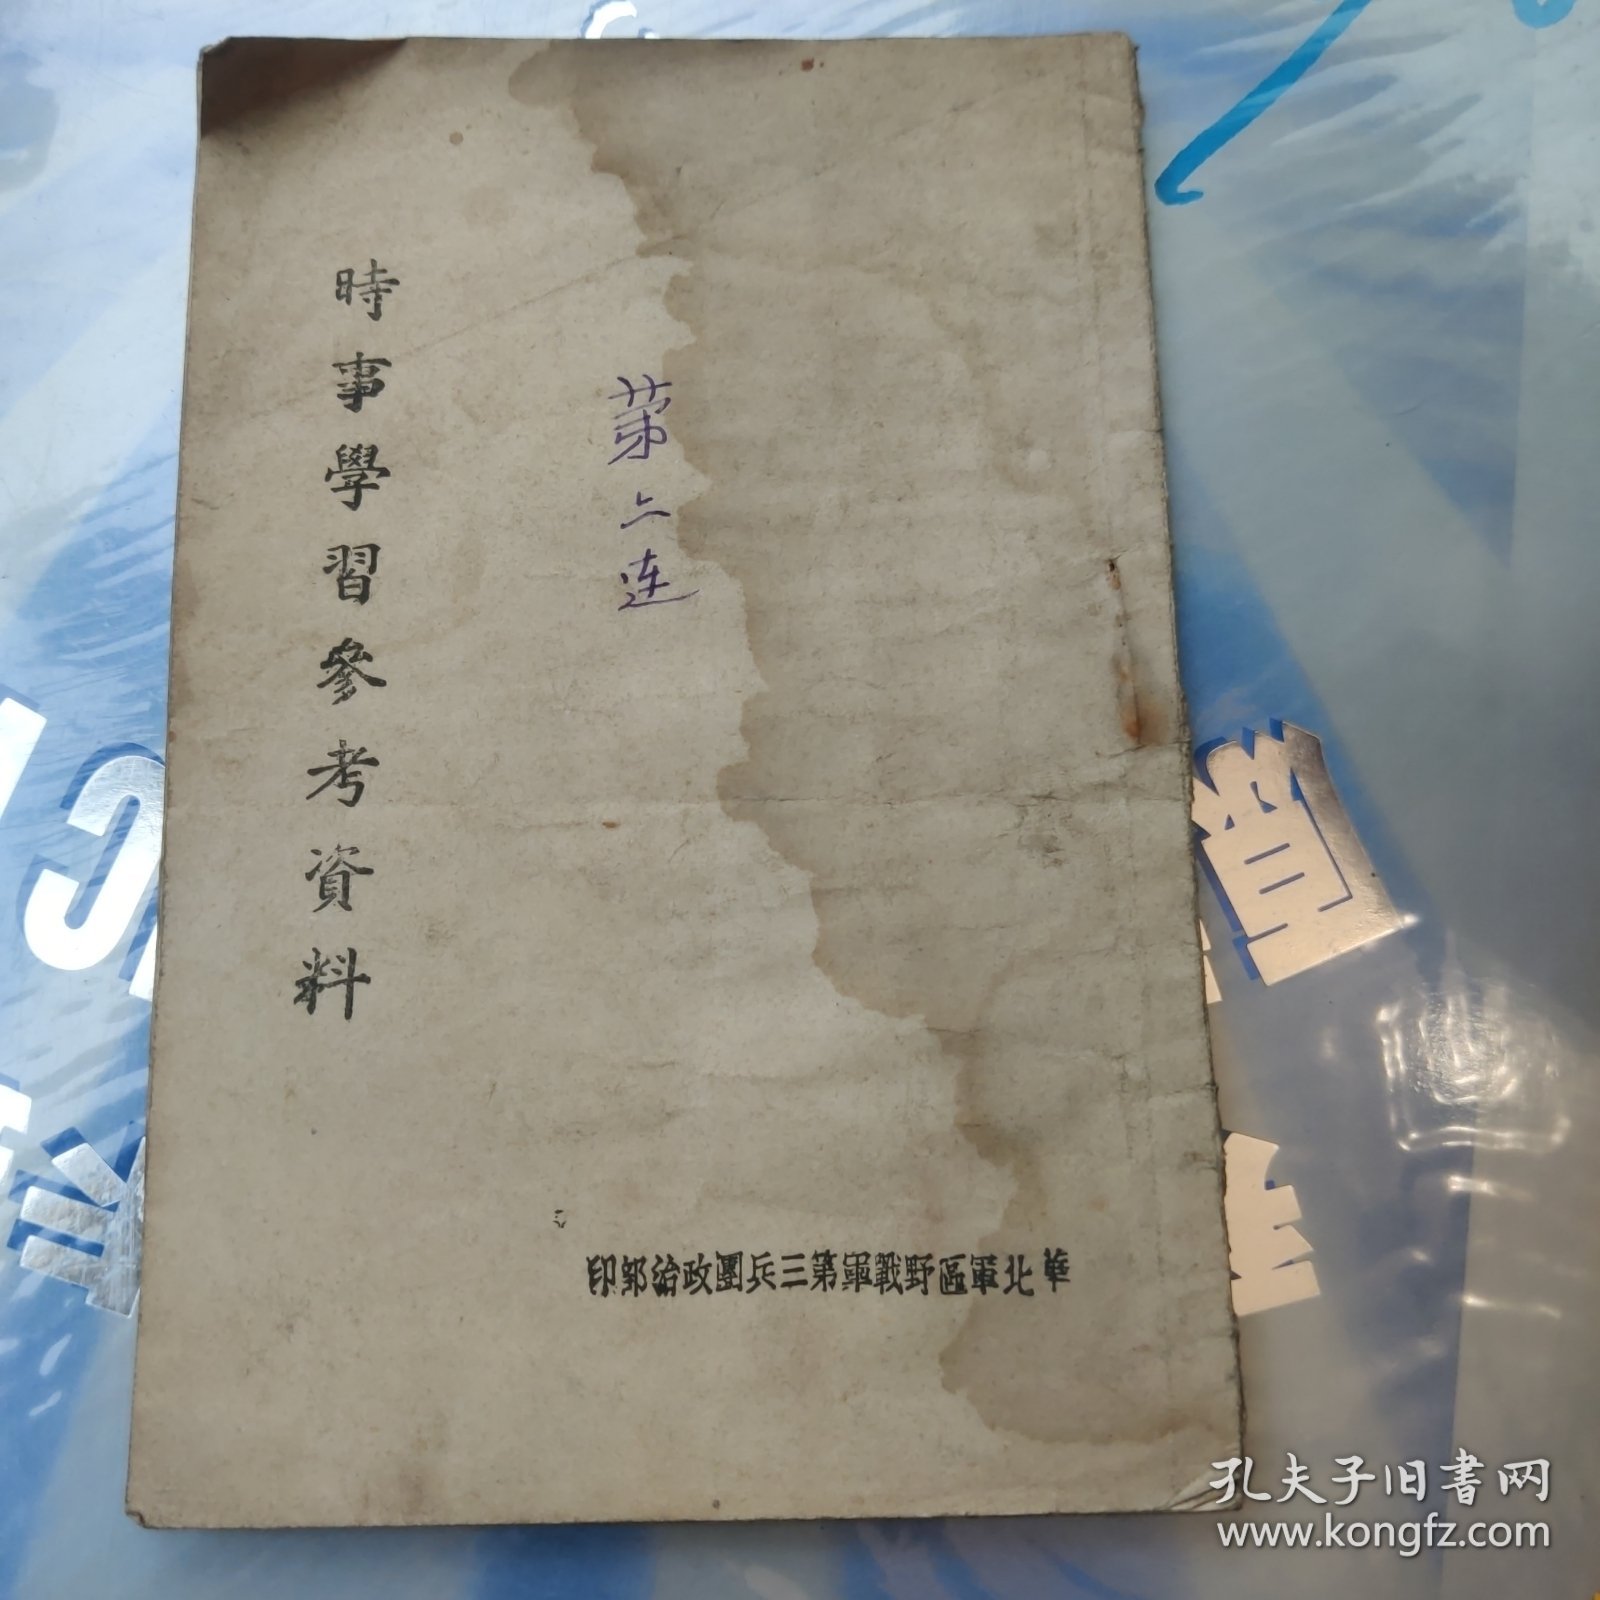 時事學習參考資料
苐连
華北軍區野戰軍第三兵團政治部印
孔夫子旧書网
www.kongfz.com